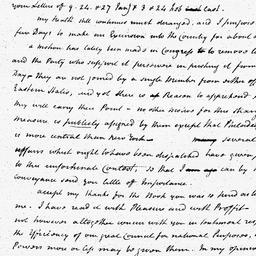 your letters of 9. 24. & 27 Jany & 3 & 24 Feb last.
my health still continues much deranged, and I purpose
few Days to make an Excursion into the Country for about a
a motion has lately been made in Congress to remove to
and the Party who support it persevere in pushing it from
Day they are not joined by a single Member from
Eastern States, and yet there is Reason to apprehend
they will carry their Point — no other motives for this
measure is publicly assigned by them except that Philadel
is more central than New York several
affairs which ought to have been dispatched have given
to this unfortunate Contest, so that I can by
conveyance send you letters of Importance.
accept my thanks for the Book you was so kind as to
me. I have read it with Pleasure and with Profit
not however altogether concur with you in sentiment
the efficiency of our great council for national Purposes,
Powers more or less may be given them. In my opinion